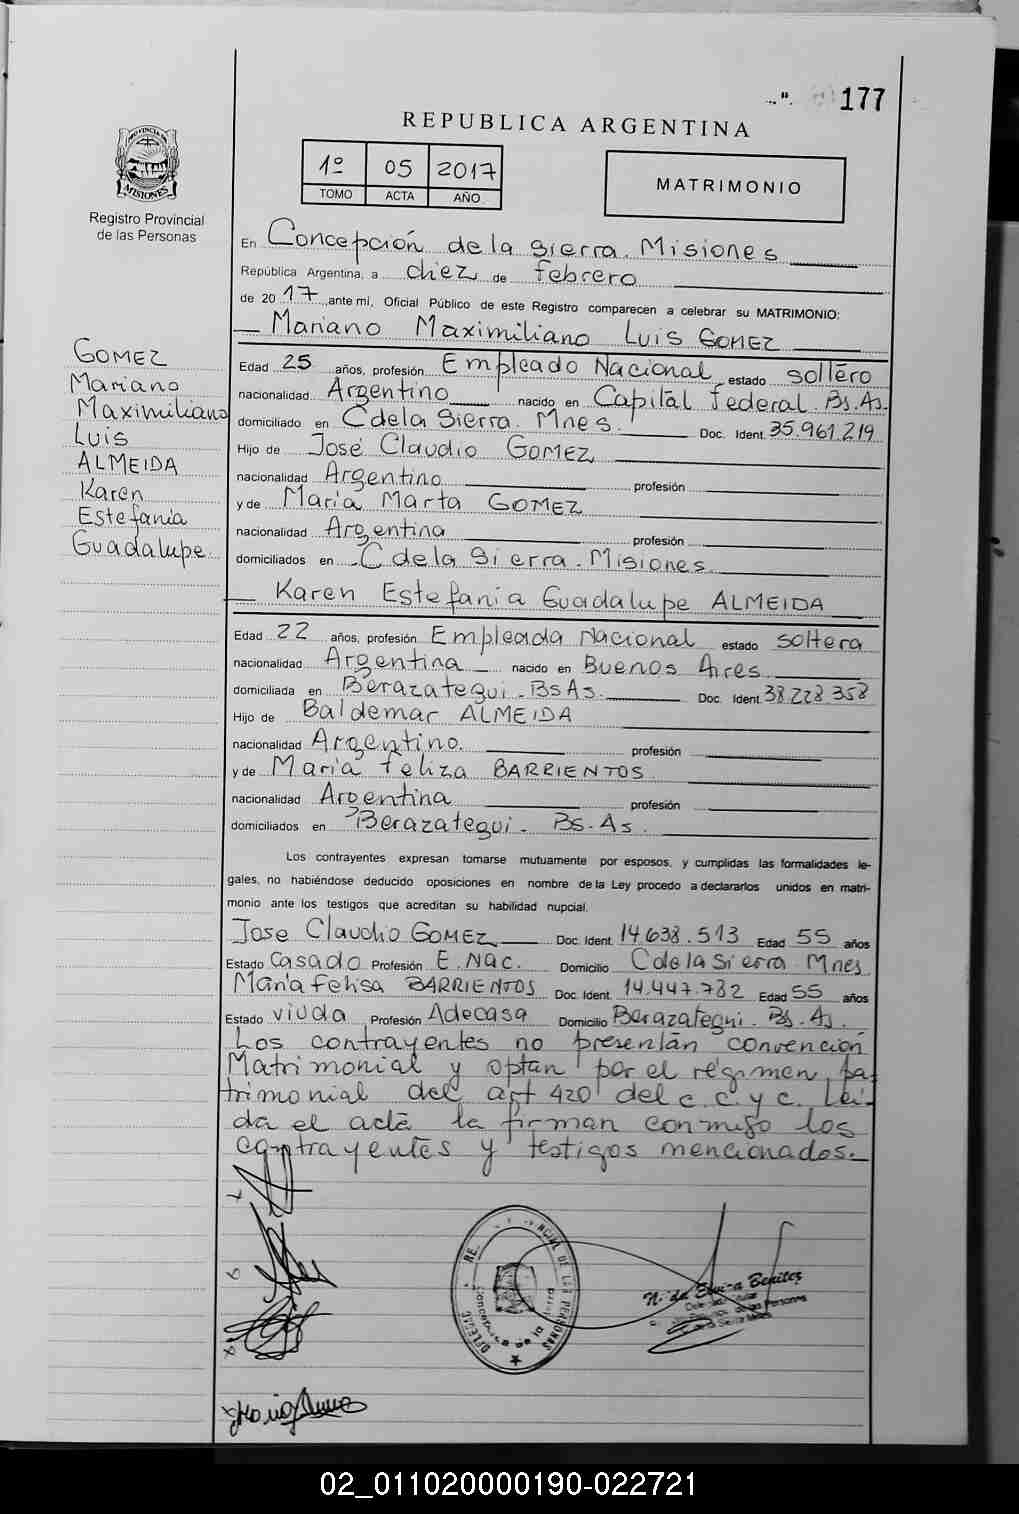 177
REPUBLICA ARGENTINA
1º 05 2017
TOMO ACTA AÑO
MATRIMONIO
PROVINCIA DE
MISIONES
Registro Provincial
de las Personas
GOMEZ
Mariano
Maximiliano
Luis
ALMEIDA
Karen
Estefania
Guadalupe
En Concepción de la Sierra. Misiones
República Argentina, a diez de febrero
de 2017 ante mi, Oficial Público de este Registro comparecen a celebrar su MATRIMONIO:
Mariano Maximiliano Luis GOMEZ
Edad 25 años, profesión Empleado Nacional estado soltero
nacionalidad Argentino nacido en Capital Federal. Bs.As.
domiciliado en C de la Sierra. Mnes. Doc. Ident. 35.961.219
Hijo de José Claudio GOMEZ
nacionalidad Argentino profesión
y de María Marta GOMEZ
nacionalidad Argentina profesión
domiciliados en C de la Sierra. Misiones
Karen Estefania Guadalupe ALMEIDA
Edad 22 años, profesión Empleada Nacional estado soltera
nacionalidad Argentina nacido en Buenos Aires
domiciliada en Berazategui. BsAs. Doc. Ident. 38.228.358
Hijo de Baldemar ALMEIDA
nacionalidad Argentino. profesión
y de María Feliza BARRIENTOS
nacionalidad Argentina profesión
domiciliados en Berazategui. Bs.As.
Los contrayentes expresan tomarse mutuamente por esposos, y cumplidas las formalidades le-
gales, no habiéndose deducido oposiciones en nombre de la Ley procedo a declararlos unidos en matri-
monio ante los testigos que acreditan su habilidad nupcial.
Jose Claudio GOMEZ Doc. Ident. 14.638.513 Edad 55 años
Estado Casado Profesión E. Nac. Domicilio C de la Sierra Mnes
María Felisa BARRIENTOS Doc. Ident. 14.447.782 Edad 55 años
Estado viuda Profesión Adecasa Domicilio Berazategui. Bs.As.
Los contrayentes no presentan convención
Matrimonial y optan por el régimen pa-
trimonial del art 420 del c.c.y c. Leí-
da el acta la firman conmigo los
contrayentes y testigos mencionados.-
DE LAS PERSONAS
Concepción de la Sierra
Benitez
02_011020000190-022721